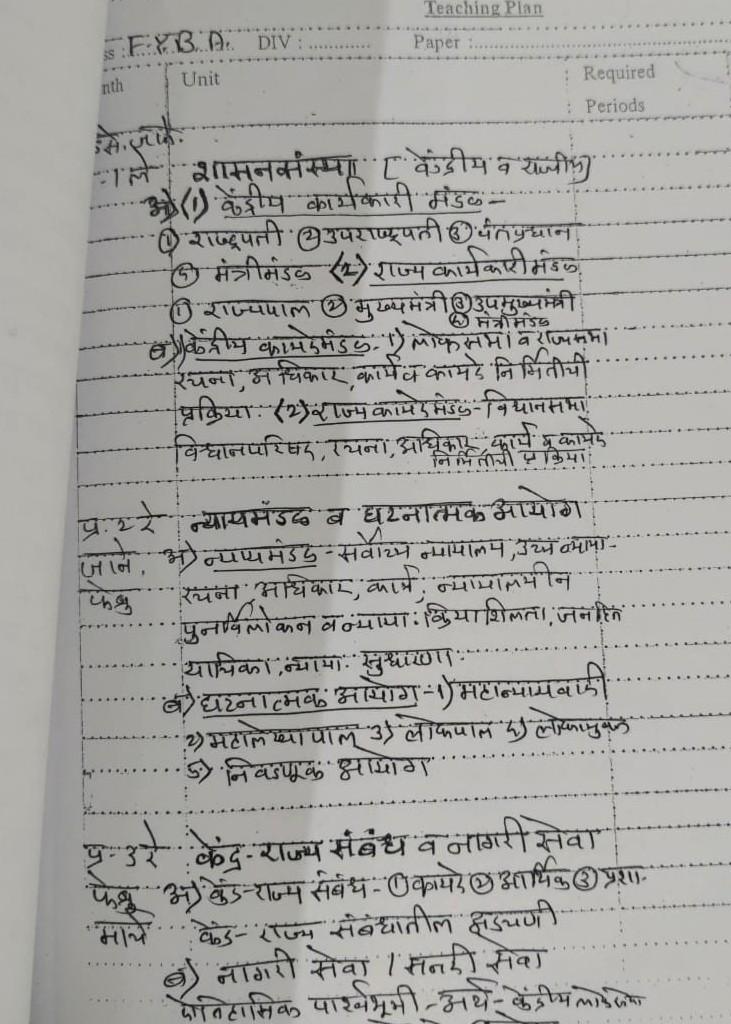 Teaching Plan
ss : F.Y.B.A. DIV : ............ Paper :
nth Unit : Required
: Periods
डिसे. जाने.
-1ले शासनसंस्था [ केंद्रीय व राज्यीय]
अ) (1) केंद्रीय कार्यकारी मंडळ -
① राष्ट्रपती ② उपराष्ट्रपती ③ पंतप्रधान
④ मंत्रीमंडळ (2) राज्य कार्यकारी मंडळ
① राज्यपाल ② मुख्यमंत्री ③ उपमुख्यमंत्री
④ मंत्रीमंडळ
ब) केंद्रीय कायदेमंडळ - 1) लोकसभा व राज्यसभा
रचना, अधिकार, कार्य व कायदे निर्मितीची
प्रक्रिया. (2) राज्य कायदेमंडळ - विधानसभा
विधानपरिषद, रचना, अधिकार, कार्य व कायदे
निर्मितीची प्रक्रिया
प्र. 2 रे न्यायमंडळ व घटनात्मक आयोग
जाने. अ) न्यायमंडळ - सर्वोच्च न्यायालय, उच्च न्याया-
फेब्रु रचना, अधिकार, कार्य, न्यायालयीन
पुनर्विलोकन व न्याया. क्रियाशिलता, जनहित
याचिका, न्याया. सुधारणा.
ब) घटनात्मक आयोग - 1) महान्यायवादी
2) महालेखापाल 3) लोकपाल 4) लोकायुक्त
5) निवडणूक आयोग
प्र- 3 रे केंद्र- राज्य संबंध व नागरी सेवा
फेब्रु अ) केंद्र-राज्य संबंध - ① कायदे ② आर्थिक ③ प्रशा-
मार्च केंद्र- राज्य संबंधातील अडचणी
ब) नागरी सेवा / सनदी सेवा
ऐतिहासिक पार्श्वभूमी - अर्थ - केंद्रीय लोकसेवा